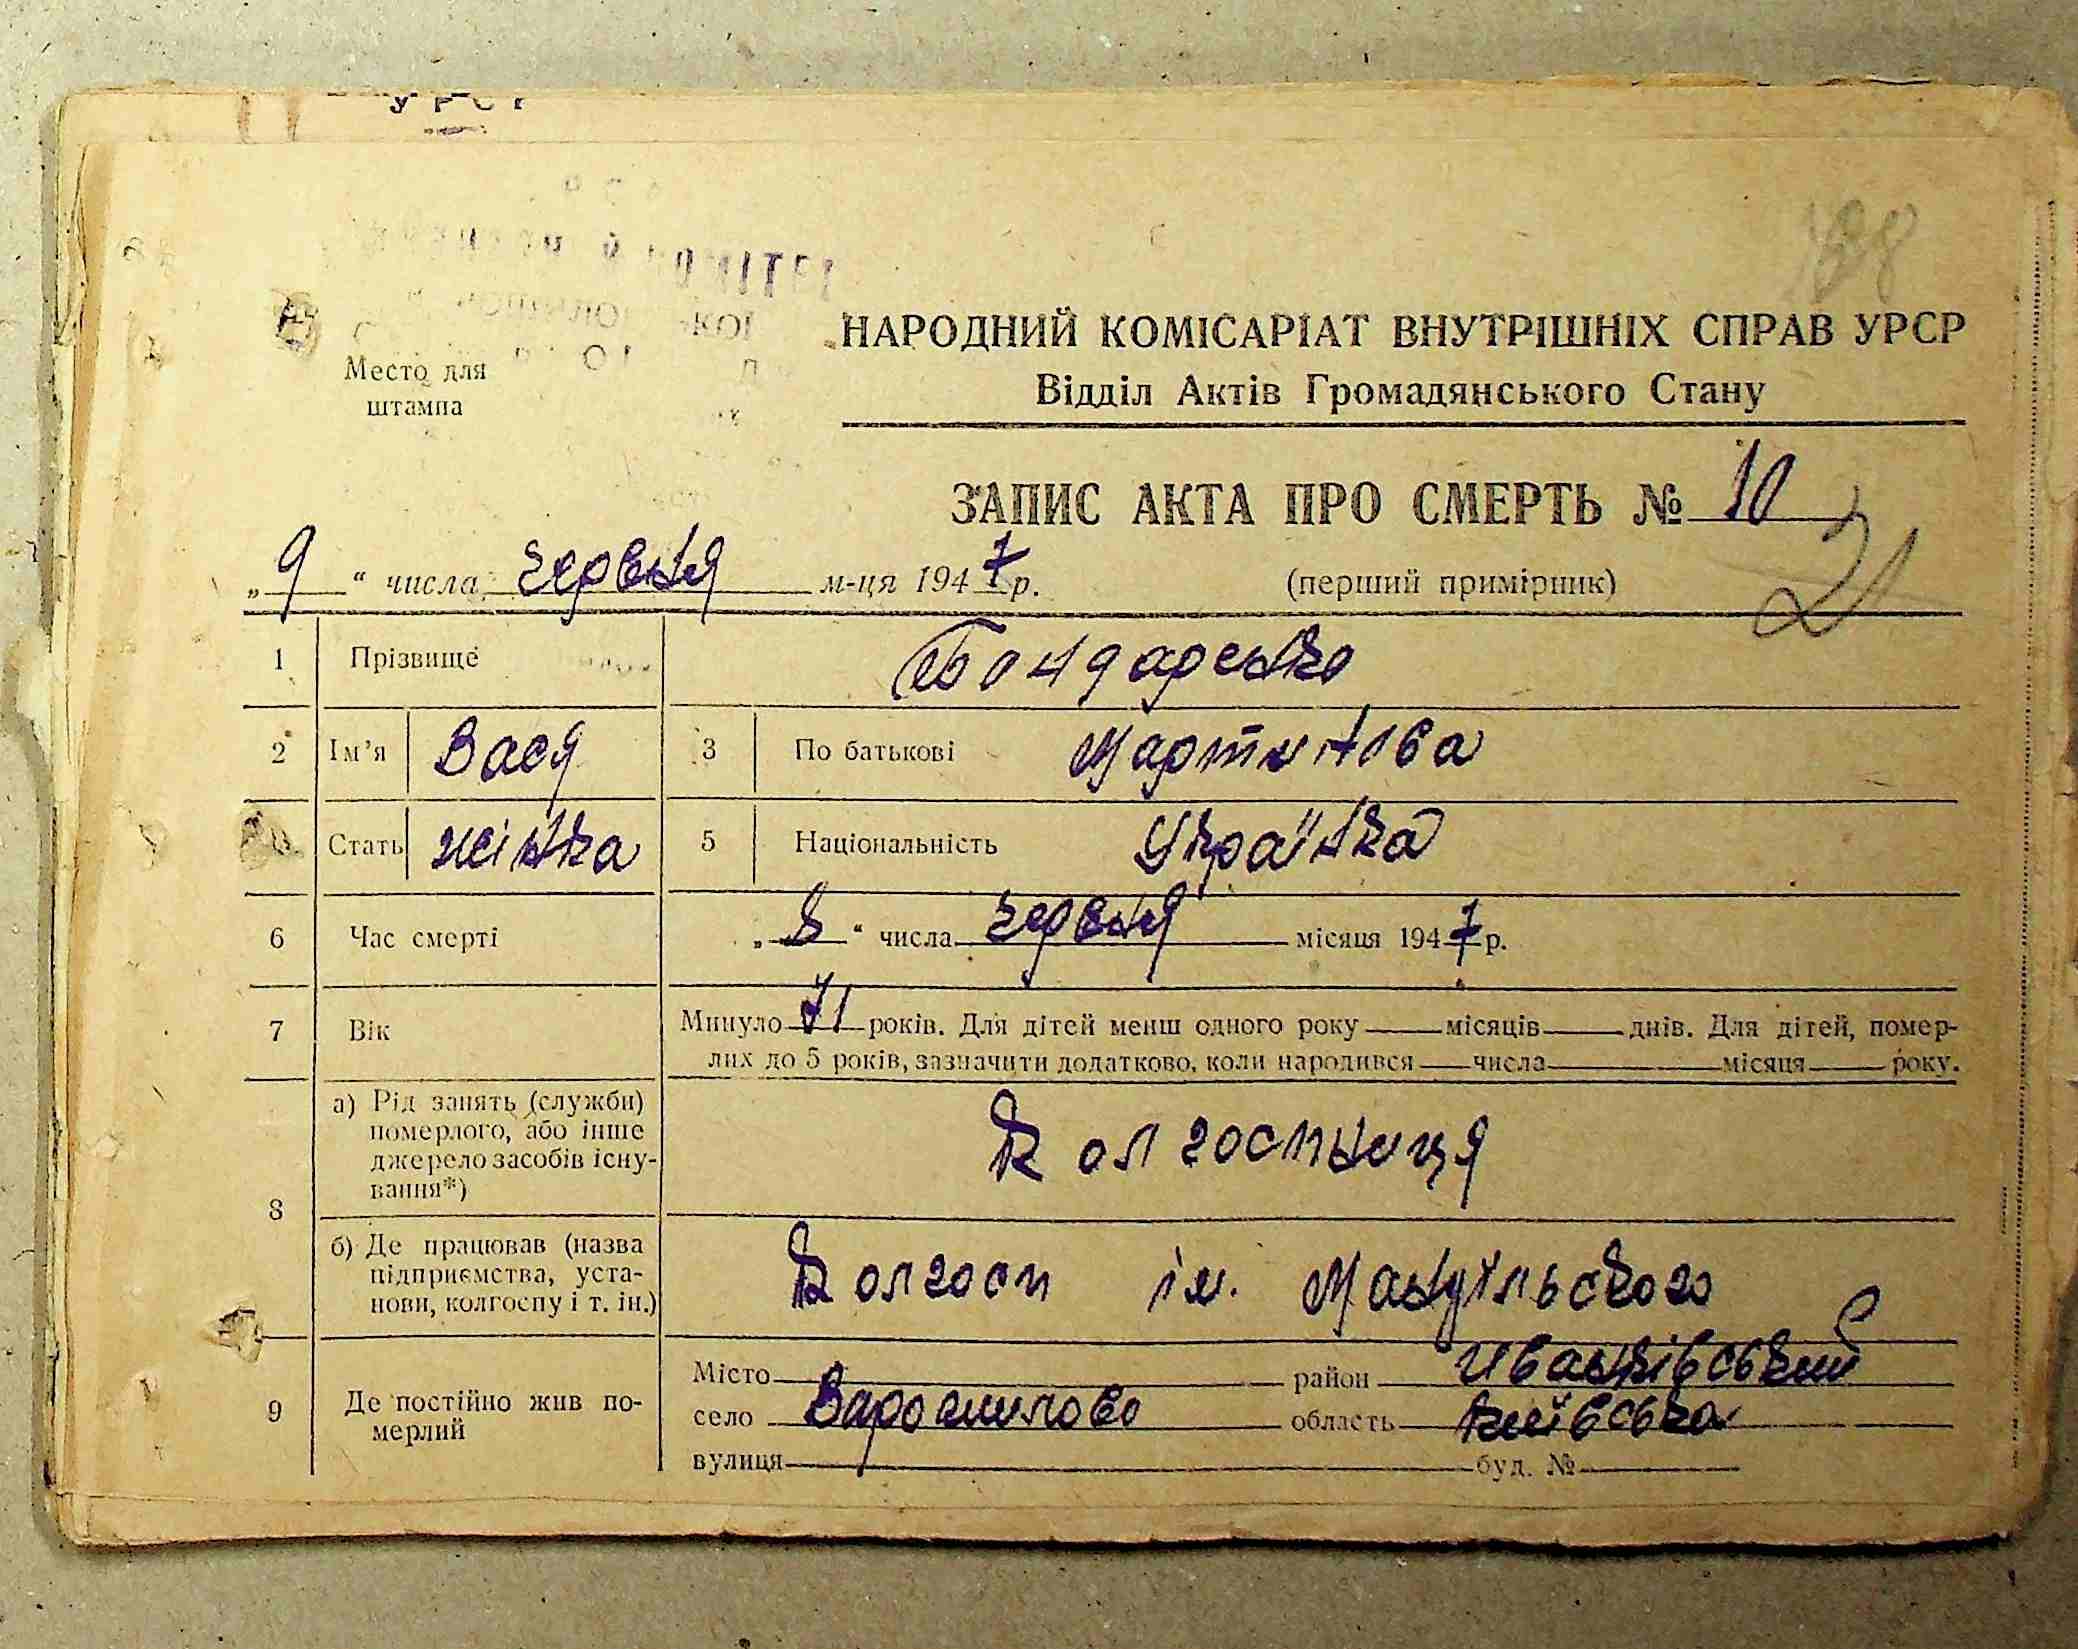 УРСР
Место для
штампа
НАРОДНИЙ КОМІСАРІАТ ВНУТРІШНІХ СПРАВ УРСР
Відділ Актів Громадянського Стану
ЗАПИС АКТА ПРО СМЕРТЬ № 10
„9“ числа червня м-ця 1947 р. (перший примірник)
21
1 Прізвище Бондаренко
2 Ім'я Вася 3 По батькові Мартинова
Стать жінка 5 Національність Українка
6 Час смерті „8“ числа червня місяця 1947 р.
7 Вік Минуло 71 років. Для дітей менш одного року місяців днів. Для дітей, помер-
лих до 5 років, зазначити додатково, коли народився числа місяця року.
8 а) Рід занять (служби)
померлого, або інше
джерело засобів існу-
вання*)
Колгоспниця
б) Де працював (назва
підприємства, уста-
нови, колгоспу і т. ін.)
Колгосп ім. Мануїльського
9 Де постійно жив по-
мерлий
Місто район Иванківський
село область Київська
вулиця буд. №